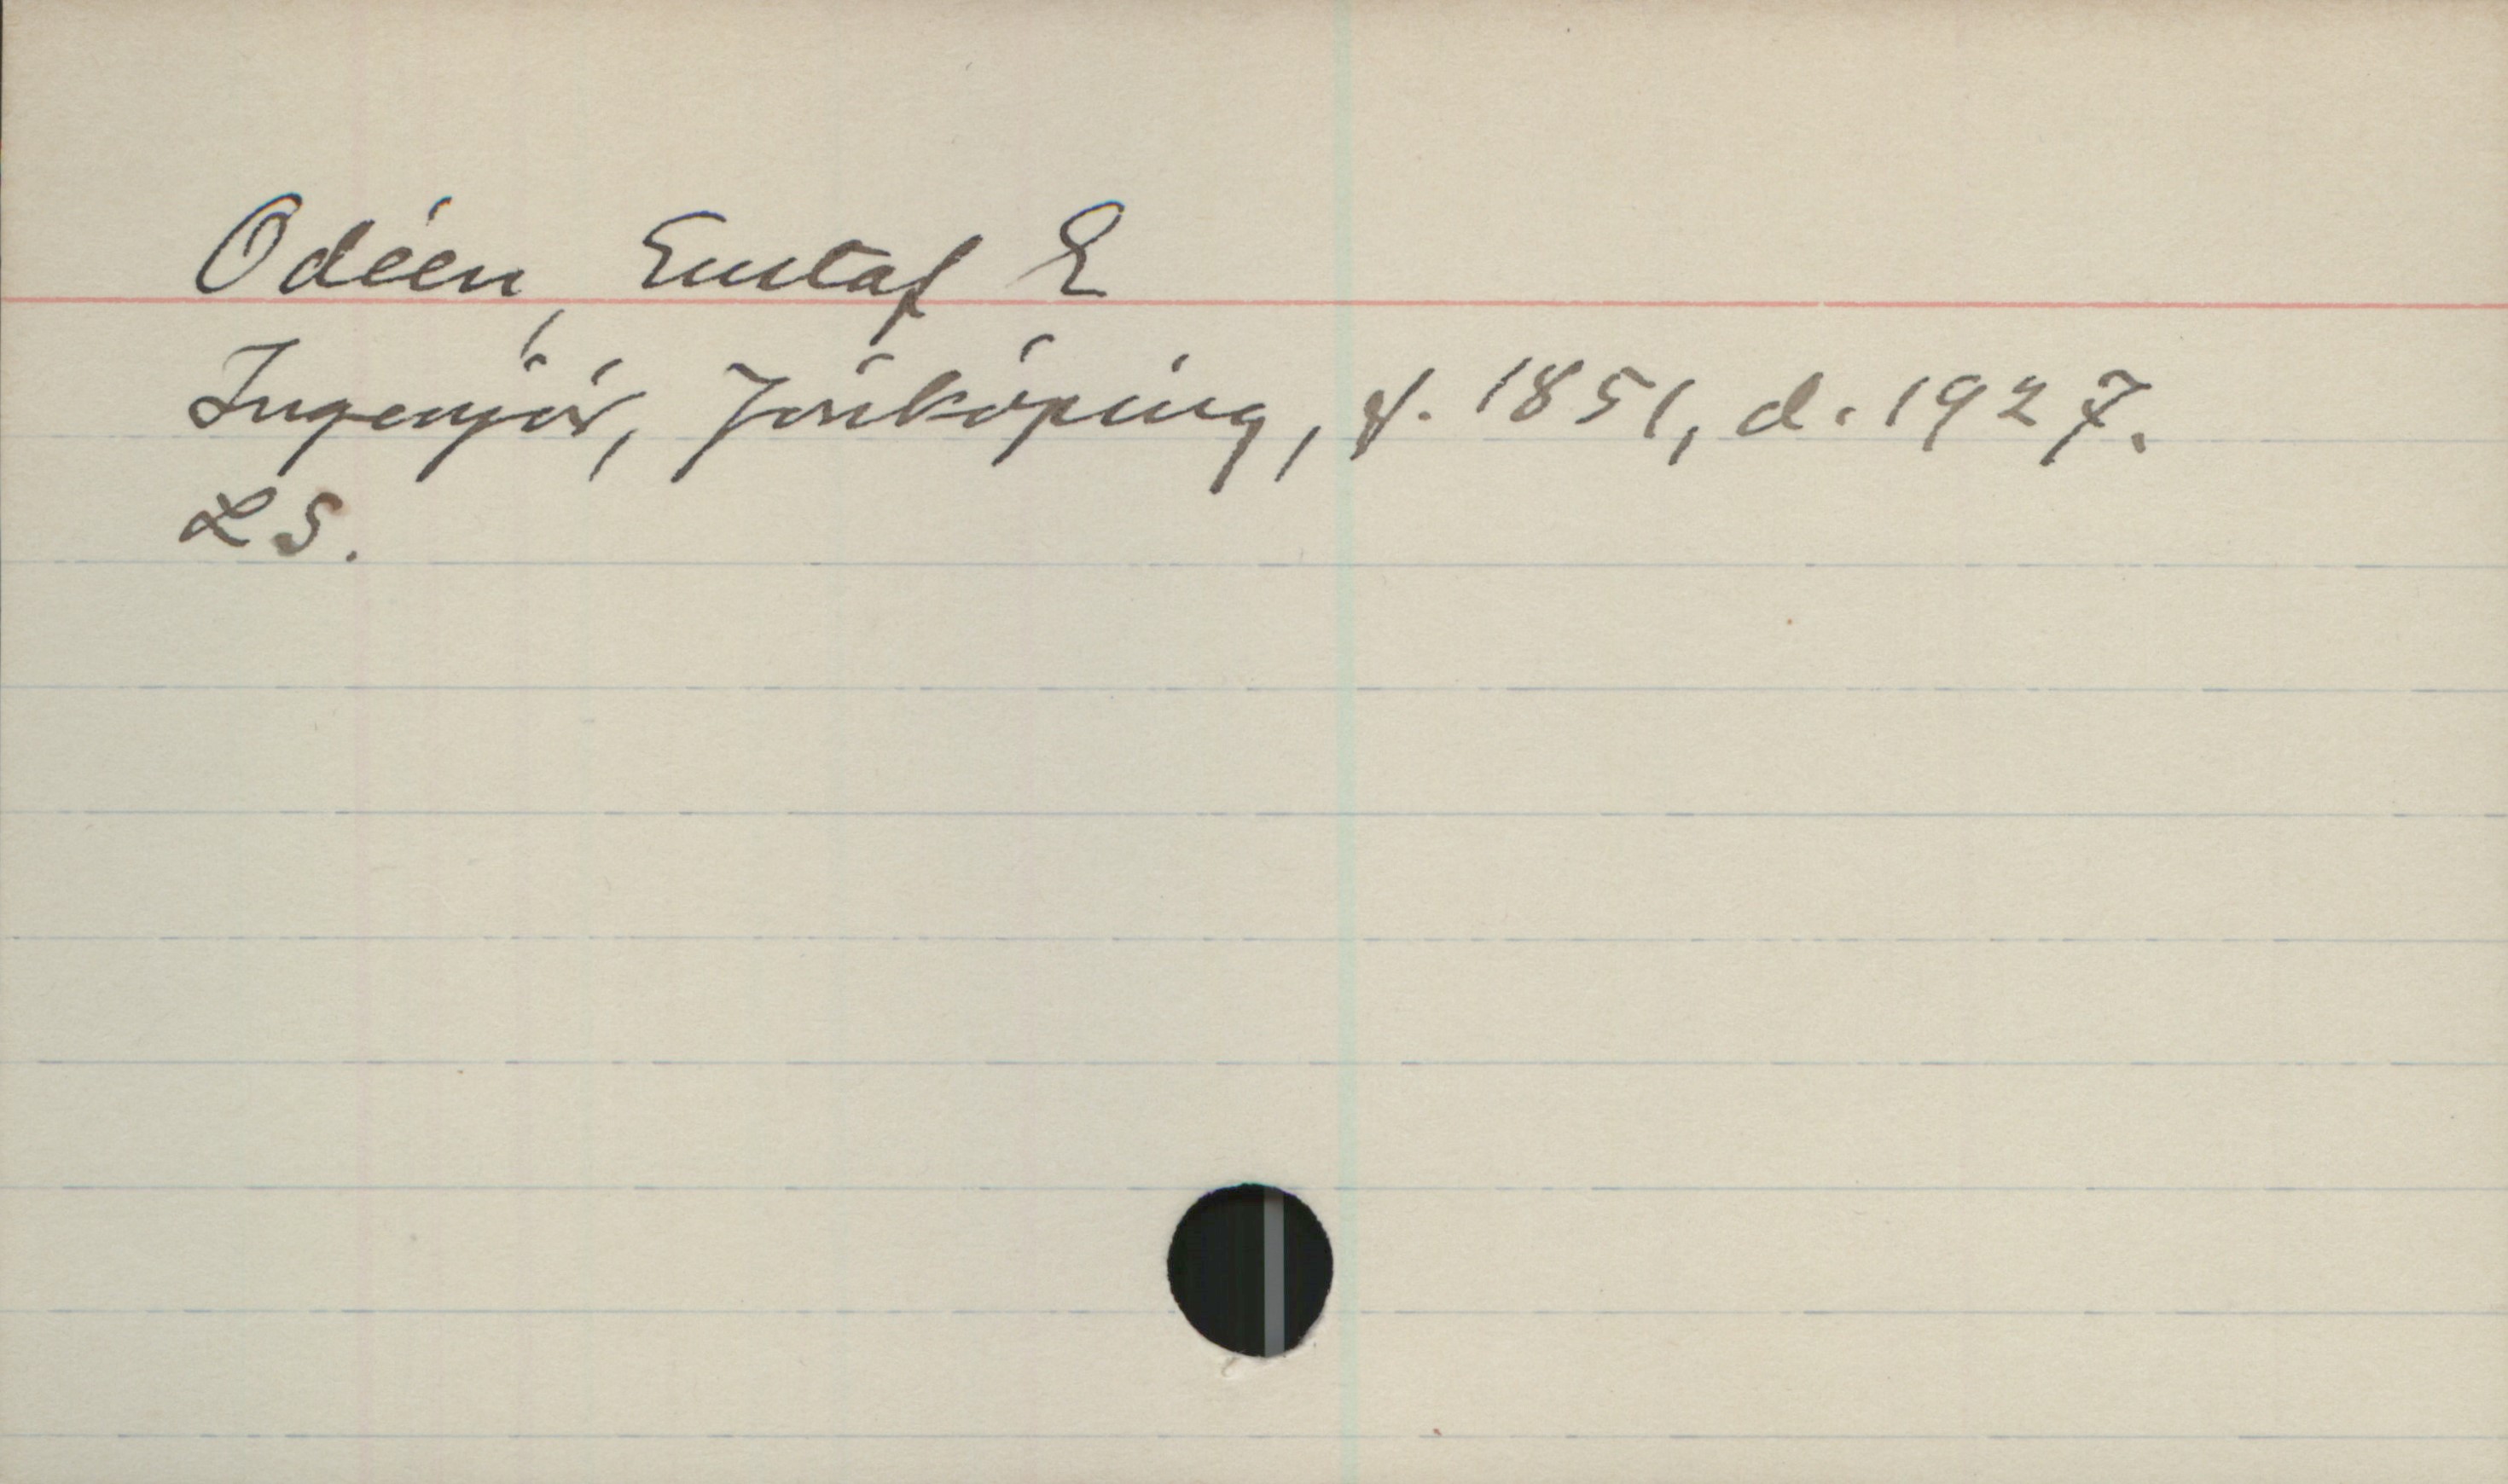 Odéen, Gustaf E
Ingenjör, Jönköping, f. 1851, d. 1927.
LS.